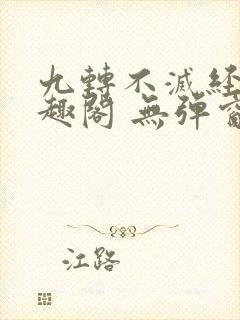 九轉不滅經
趣閣 無彈窗
江路